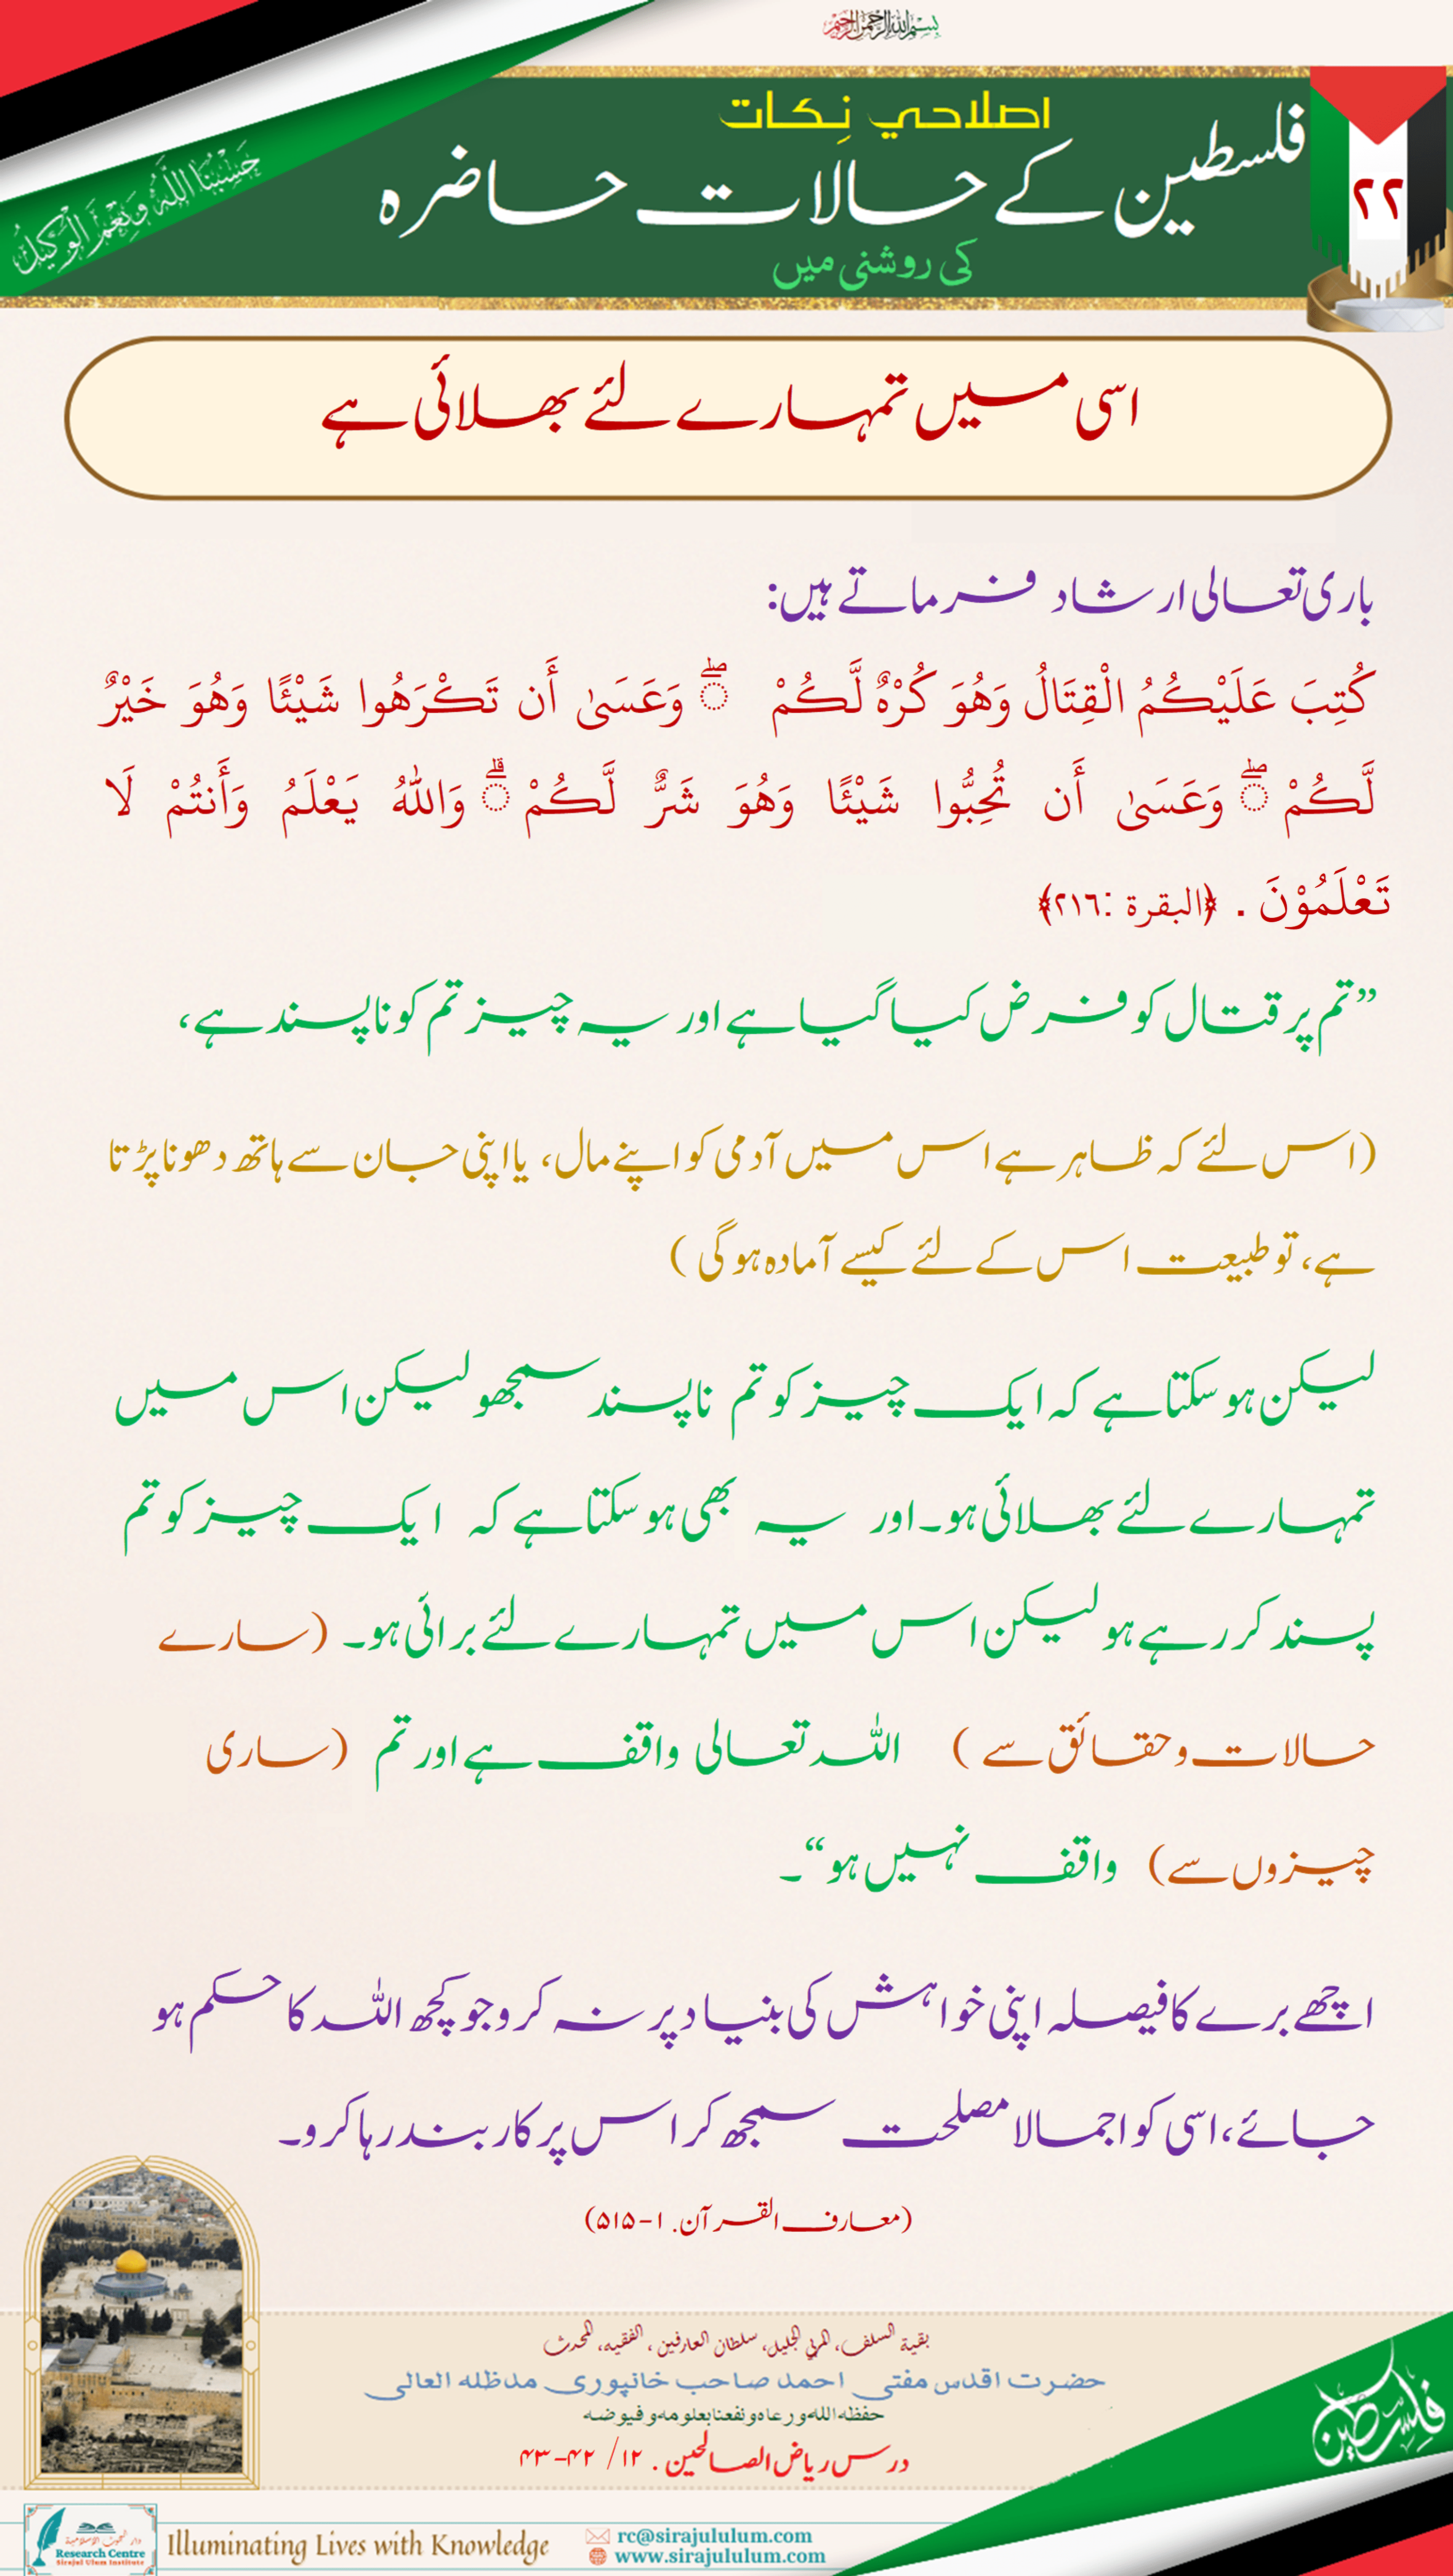 بسم الله الرحمن الرحيم
اصلاحي نِكات
فلسطین کے حالات حاضرہ
کی روشنی میں
٢٢
حَسْبُنَا اللَّهُ وَنِعْمَ الْوَكِيلُ
اسی میں تمہارے لئے بھلائی ہے
باری تعالی ارشاد فرماتے ہیں:
كُتِبَ عَلَيْكُمُ الْقِتَالُ وَهُوَ كُرْهٌ لَّكُمْ ۖ وَعَسَىٰ أَن تَكْرَهُوا شَيْئًا وَهُوَ خَيْرٌ
لَّكُمْ ۖ وَعَسَىٰ أَن تُحِبُّوا شَيْئًا وَهُوَ شَرٌّ لَّكُمْ ۗ وَاللهُ يَعْلَمُ وَأَنتُمْ لَا
تَعْلَمُوْنَ . ﴿البقرة :٢١٦﴾
”تم پر قتال کو فرض کیا گیا ہے اور یہ چیز تم کو ناپسند ہے،
(اس لئے کہ ظاہر ہے اس میں آدمی کو اپنے مال، یا اپنی جان سے ہاتھ دھونا پڑتا
ہے، تو طبیعت اس کے لئے کیسے آمادہ ہوگی )
لیکن ہو سکتا ہے کہ ایک چیز کو تم ناپسند سمجھو لیکن اس میں
تمہارے لئے بھلائی ہو۔ اور یہ بھی ہو سکتا ہے کہ ایک چیز کو تم
پسند کر رہے ہو لیکن اس میں تمہارے لئے برائی ہو۔ (سارے
حالات و حقائق سے ) اللہ تعالی واقف ہے اور تم (ساری
چیزوں سے) واقف نہیں ہو“۔
اچھے برے کا فیصلہ اپنی خواہش کی بنیاد پر نہ کرو جو کچھ اللہ کا حکم ہو
جائے، اسی کو اجمالا مصلحت سمجھ کر اس پر کاربند رہا کرو۔
(معارف القرآن. ۱-۵۱۵)
بقية السلف، المربي الجليل، سلطان العارفين، الفقيه، المحدث
حضرت اقدس مفتی احمد صاحب خانپوری مدظلہ العالی
حفظه الله ورعاه ونفعنا بعلومه وفيوضه
درس ریاض الصالحین . ۱۲/ ۴۲-۴۳
فلسطين
دار البحوث الإسلامية
Research Centre
Sirajul Ulum Institute
Illuminating Lives with Knowledge
rc@sirajululum.com
www.sirajululum.com